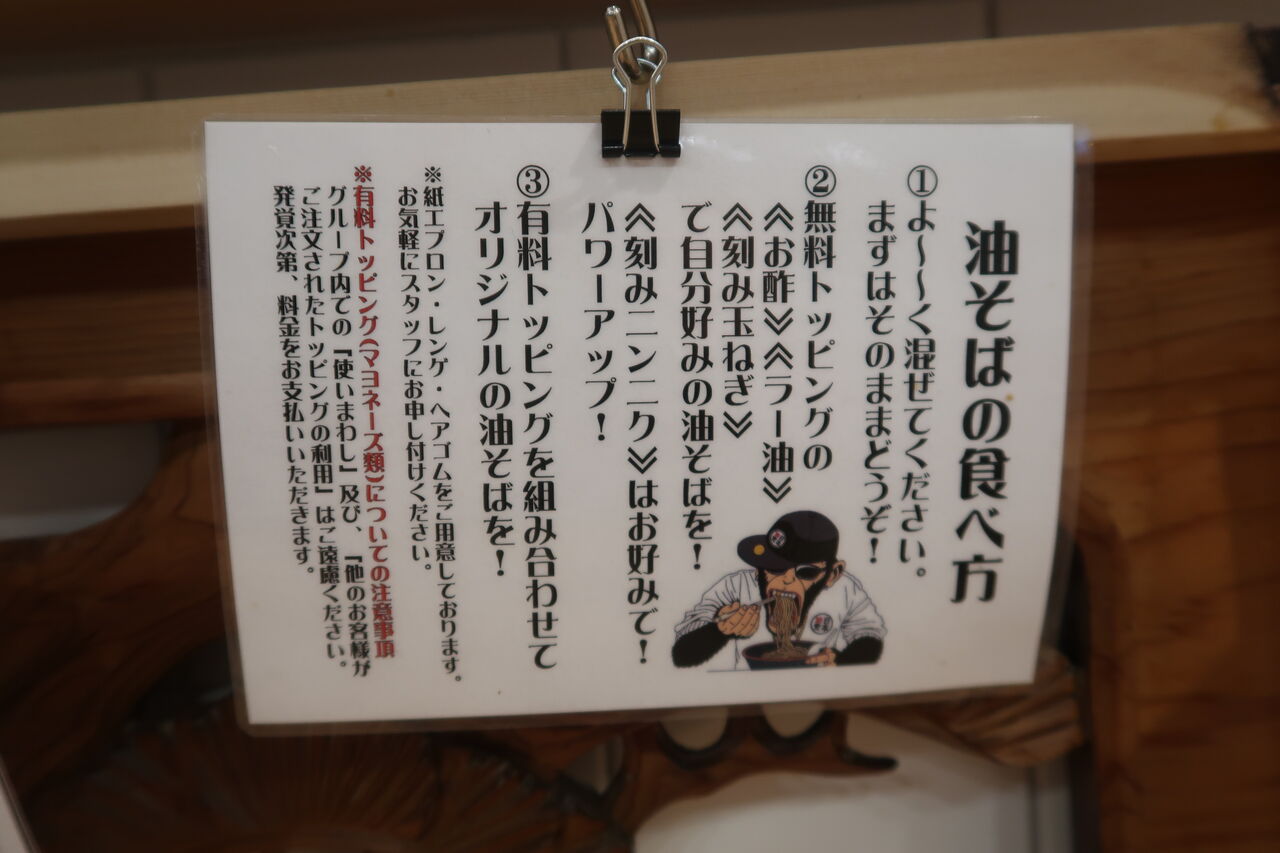 油そばの食べ方
①よ～～く混ぜてください。
まずはそのままどうぞ！
②無料トッピングの
≪お酢≫≪ラー油≫
≪刻み玉ねぎ≫
で自分好みの油そばを！
≪刻みニンニク≫はお好みで！
パワーアップ！
③有料トッピングを組み合わせて
オリジナルの油そばを！
※紙エプロン・レンゲ・ヘアゴムをご用意しております。
お気軽にスタッフにお申し付けください。
※有料トッピング(マヨネーズ類)についての注意事項
グループ内での『使いまわし』及び、『他のお客様が
ご注文されたトッピングの利用』はご遠慮ください。
発覚次第、料金をお支払いいただきます。